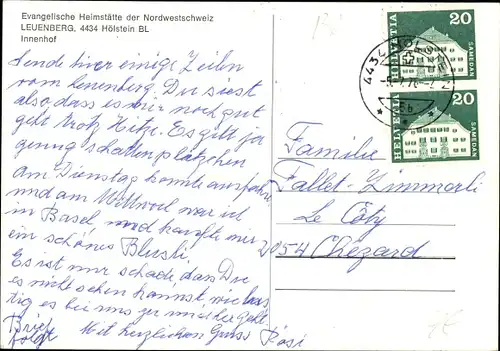 Evangelische Heimstätte der Nordwestschweiz
LEUENBERG, 4434 Hölstein BL
Innenhof
Sende hier einige Zeilen
vom Leuenberg. Du siest
also, dass es hier noch gut
geht trotz Hitze. Es gibt ja
genug schattenplätzchen
am Dienstag konnte
und am Mittwoch war ich
in Basel und kaufte mir
ein schönes Blusli.
Es ist nur schade, dass Du
es nicht sehen kannst, wie
es bei uns geht.
Brief Mit herzlichen Gruss Rösi
folgt
HELVETIA 20 SAMEDAN
HELVETIA 20 SAMEDAN
4434 HÖLSTEIN
Familie
Fallet-Zimmerli
Le Côty
2054 Chézard